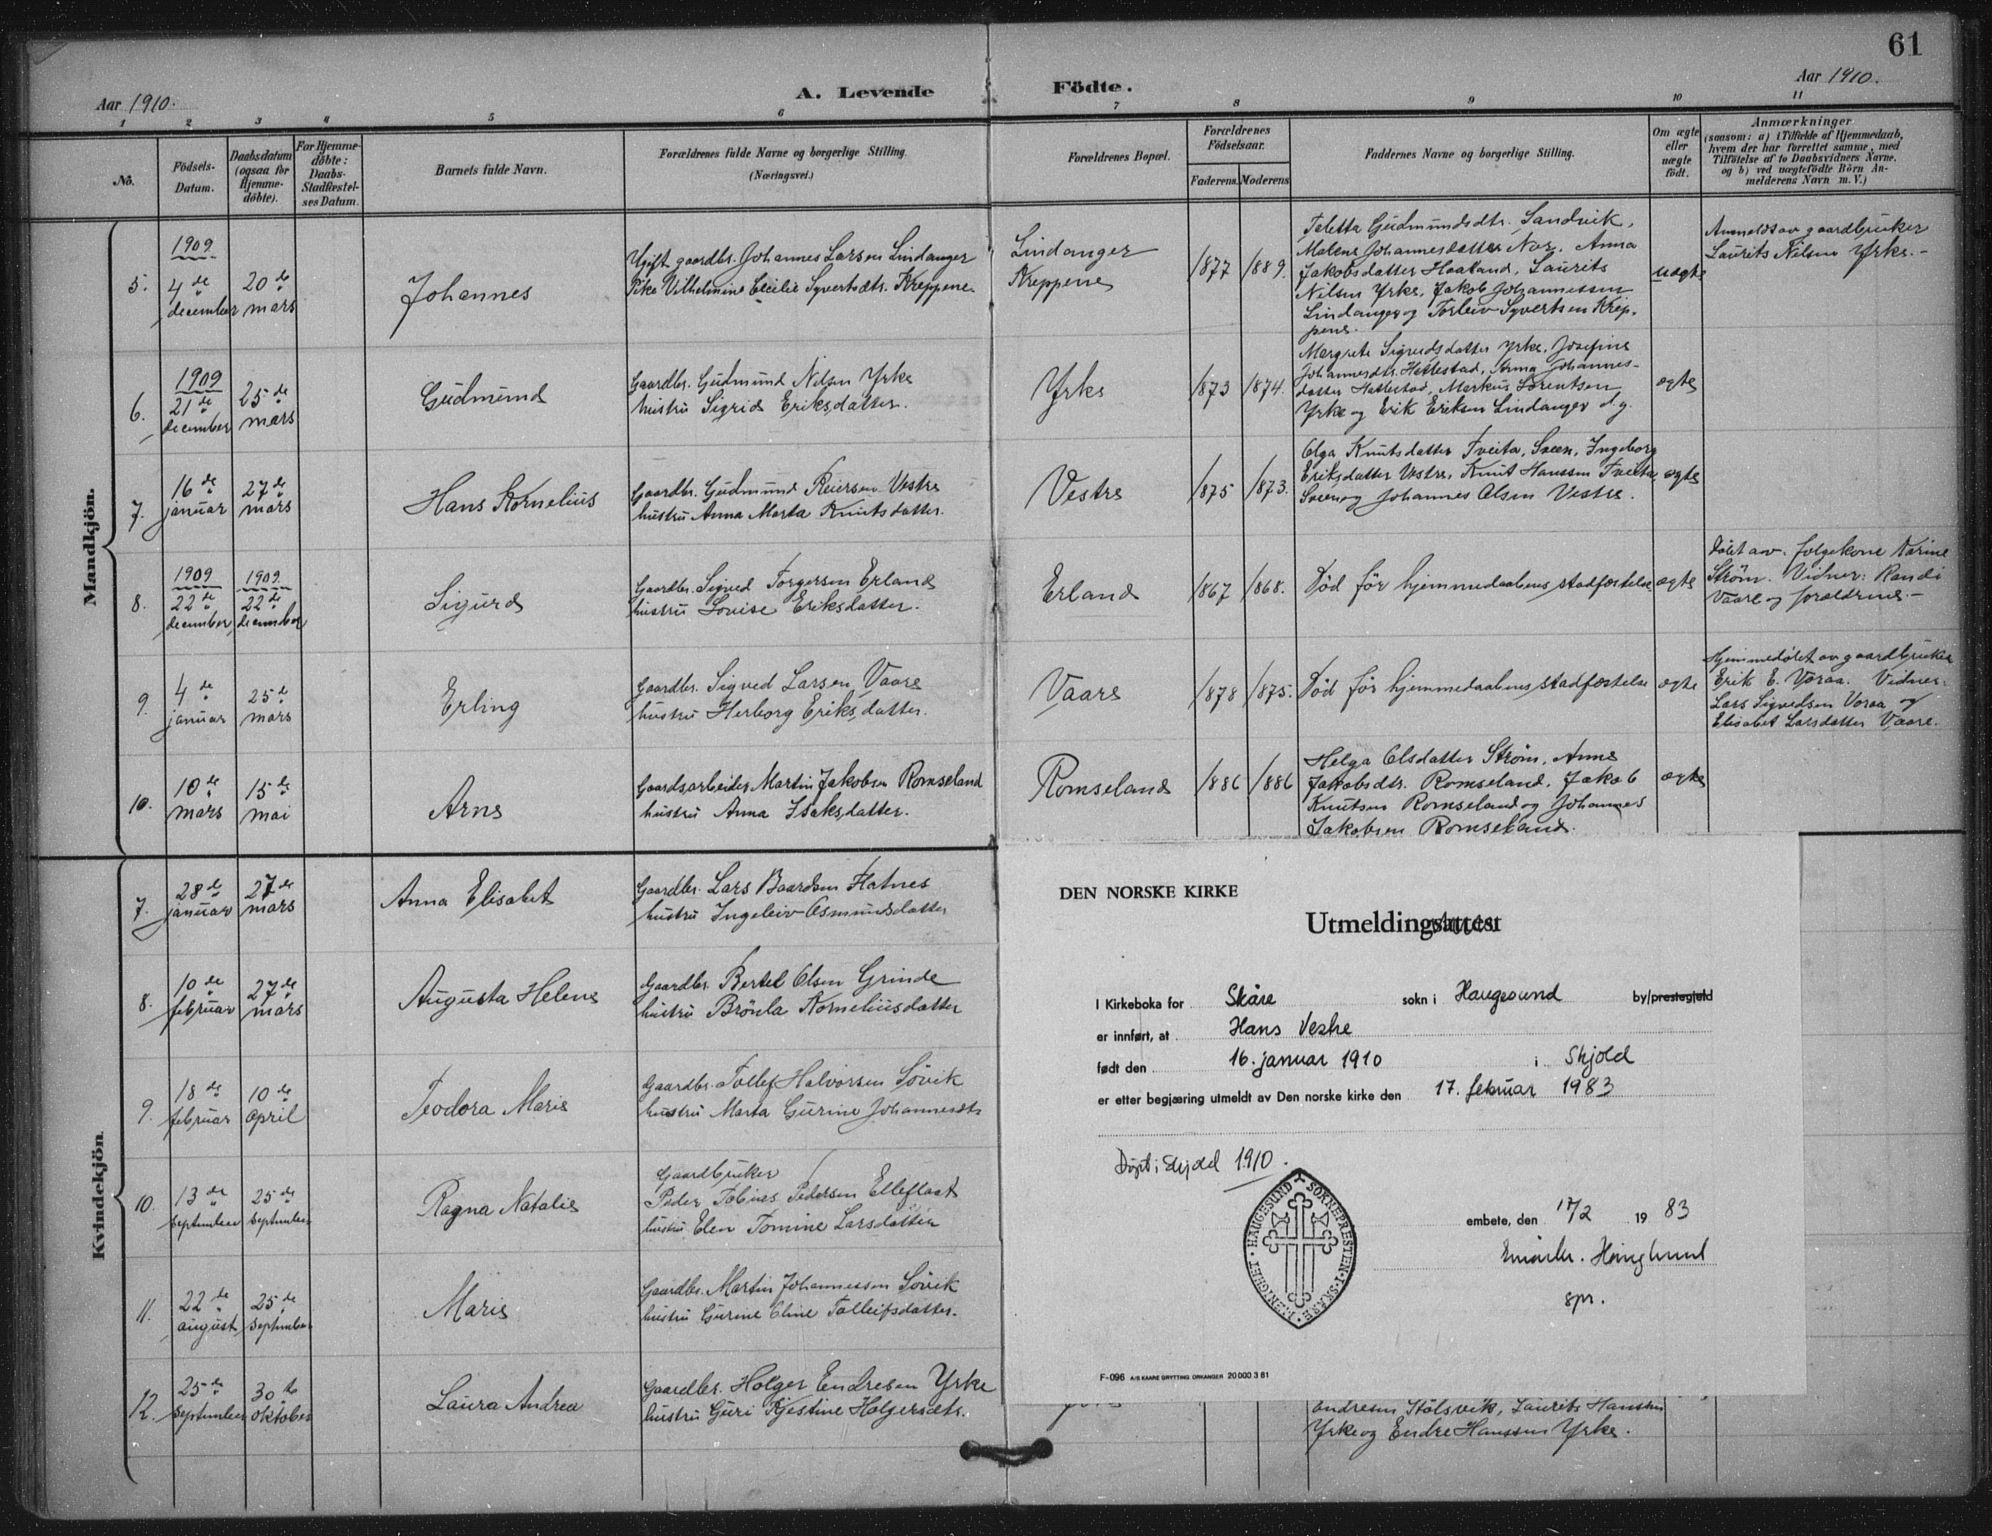 61
Aar 1910.
A. Levende Födte.
Aar 1910.
1 2 3 4 5 6 7 8 9 10 11
No.
Födsels-Datum.
Daabsdatum (ogsaa for Hjemme-döbte).
For Hjemme-döbte: Daabs-Stadfæstel-ses Datum.
Barnets fulde Navn.
Forældrenes fulde Navne og borgerlige Stilling.
(Næringsvei.)
Forældrenes Bopæl.
Forældrenes Födselsaar.
Faderens. Moderens.
Faddernes Navne og borgerlige Stilling.
Om ægte eller uægte födt.
Anmærkninger
(saasom: a) i Tilfælde af Hjemmedaab,
hvem der har forrettet samme, med
Tilföielse af to Daabsvidners Navne.
og b) ved uægtefödte Börn An-
melderens Navn m. V.)
Mandkjön.
5. 1909 4de december 20de mars Johannes
Ugift gaardbr. Johannes Larsen Lindanger
Pike Vilhelmine Cecilie Syvertsdtr. Kreppene.
Lindanger
Kreppene
1877 1889.
Taletta Gudmundsdtr. Sandvik,
Malene Johannesdatter Nor. Anna
Jakobsdatter Haaland, Laurits
Nilsen Yrke, Jakob Johannessen
Lindanger og Torleiv Syvertsen Krep-
pene.
uægte
Anmeldt av gaardbruker
Laurits Nilsen Yrke.-
6. 1909 21de december 25de mars Gudmund
Gaardbr. Gudmund Nilsen Yrke
hustru Sigrid Eriksdatter.
Yrke
1873 1874.
Margrete Sigurdsdatter Yrke, Josefine
Johannesdtr. Hettestad, Anna Johannes-
datter Hattestad, Markus Sørentsen
Yrke og Erik Eriksen Lindanger d.y.
ægte
7. 16de januar 27de mars Hans Kornelius
Gaardbr. Gudmund Reiersen Vestre
hustru Anna Marta Knutsdatter.
Vestre
1875 1873.
Olga Knutsdatter Tveita, Sveen, Ingeborg
Eriksdatter Vestre, Knut Hanssen Tveita
Sveen og Johannes Olsen Vestre.
ægte
8. 1909 22de december 1909 22de december Sigurd
Gaardbr. Sigved Torgersen Erland
hustru Lovise Eriksdatter.
Erland
1867 1868.
Død før hjemmedaabens stadfæstelse
ægte
Døbt av. følgekone Karine
Strøm. Vidner: Randi
Vaare og forældrene.-
9. 4de januar 25de mars Erling
Gaardbr. Sigved Larsen Vaare
hustru Herborg Eriksdatter.
Vaare
1878 1875.
Død før hjemmedaabens stadfæstelse
ægte
Hjemmedøbt av gaardbruker
Erik E. Voraa. Vidner:
Lars Sigvedsen Voraa og
Elisabet Larsdatter Vaare.
10. 10de mars 15de mai Arne
Gaardsarbeider Martin Jakobsen Romseland
hustru Anna Isaksdatter.
Romseland
1886 1886
Helga Olsdatter Strøm, Anne
Jakobsdtr. Romseland, Jakob
Knutsen Romseland og Johannes
Jakobsen Romseland.
ægte
Kvindekjön.
7. 28de januar 27de mars Anna Elisabet
Gaardbr. Lars Baardsen Hatnes
hustru Ingeleiv Osmundsdatter
8. 10de februar 27de mars Augusta Helene
Gaardbr. Bertel Olsen Grinde
hustru Brønla Korneliusdatter
9. 18de februar 10de april Teodora Marie
Gaardbr. Tollef Halvorsen Søvik
hustru Marta Gurine Johannesdtr
10. 13de september 25de september Ragna Natalie
Gaardbruker
Peder Tobias Pedersen Elleflaat
hustru Elen Tomine Larsdatter
11. 22de august 25de september Marie
Gaardbr. Martin Johannessen Søvik
hustru Gurine Oline Tolleifsdatter.
12. 25de september 30te oktober Laura Andrea
Gaardbr. Holger Endresen Yrke
hustru Guri Kjestine Holgersdtr.
Endresen Stølsvik, Laurits Hanssen
Yrke og Endre Hanssen Yrke.
DEN NORSKE KIRKE
Utmeldingsattest
I Kirkeboka for Skåre sokn i Haugesund by/prestegjeld
er innført, at Hans Vestre
født den 16. januar 1910 i Skjold
er etter begjæring utmeldt av Den norske kirke den 17. februar 1983
Døpt i Skjold 1910.
embete, den 17/2 19 83
spr.
SOKNEPRESTEN I SKÅRE MENIGHET · HAUGESUND
F-096 A/S KAARE GRYTTING ORKANGER 20 000 3 81